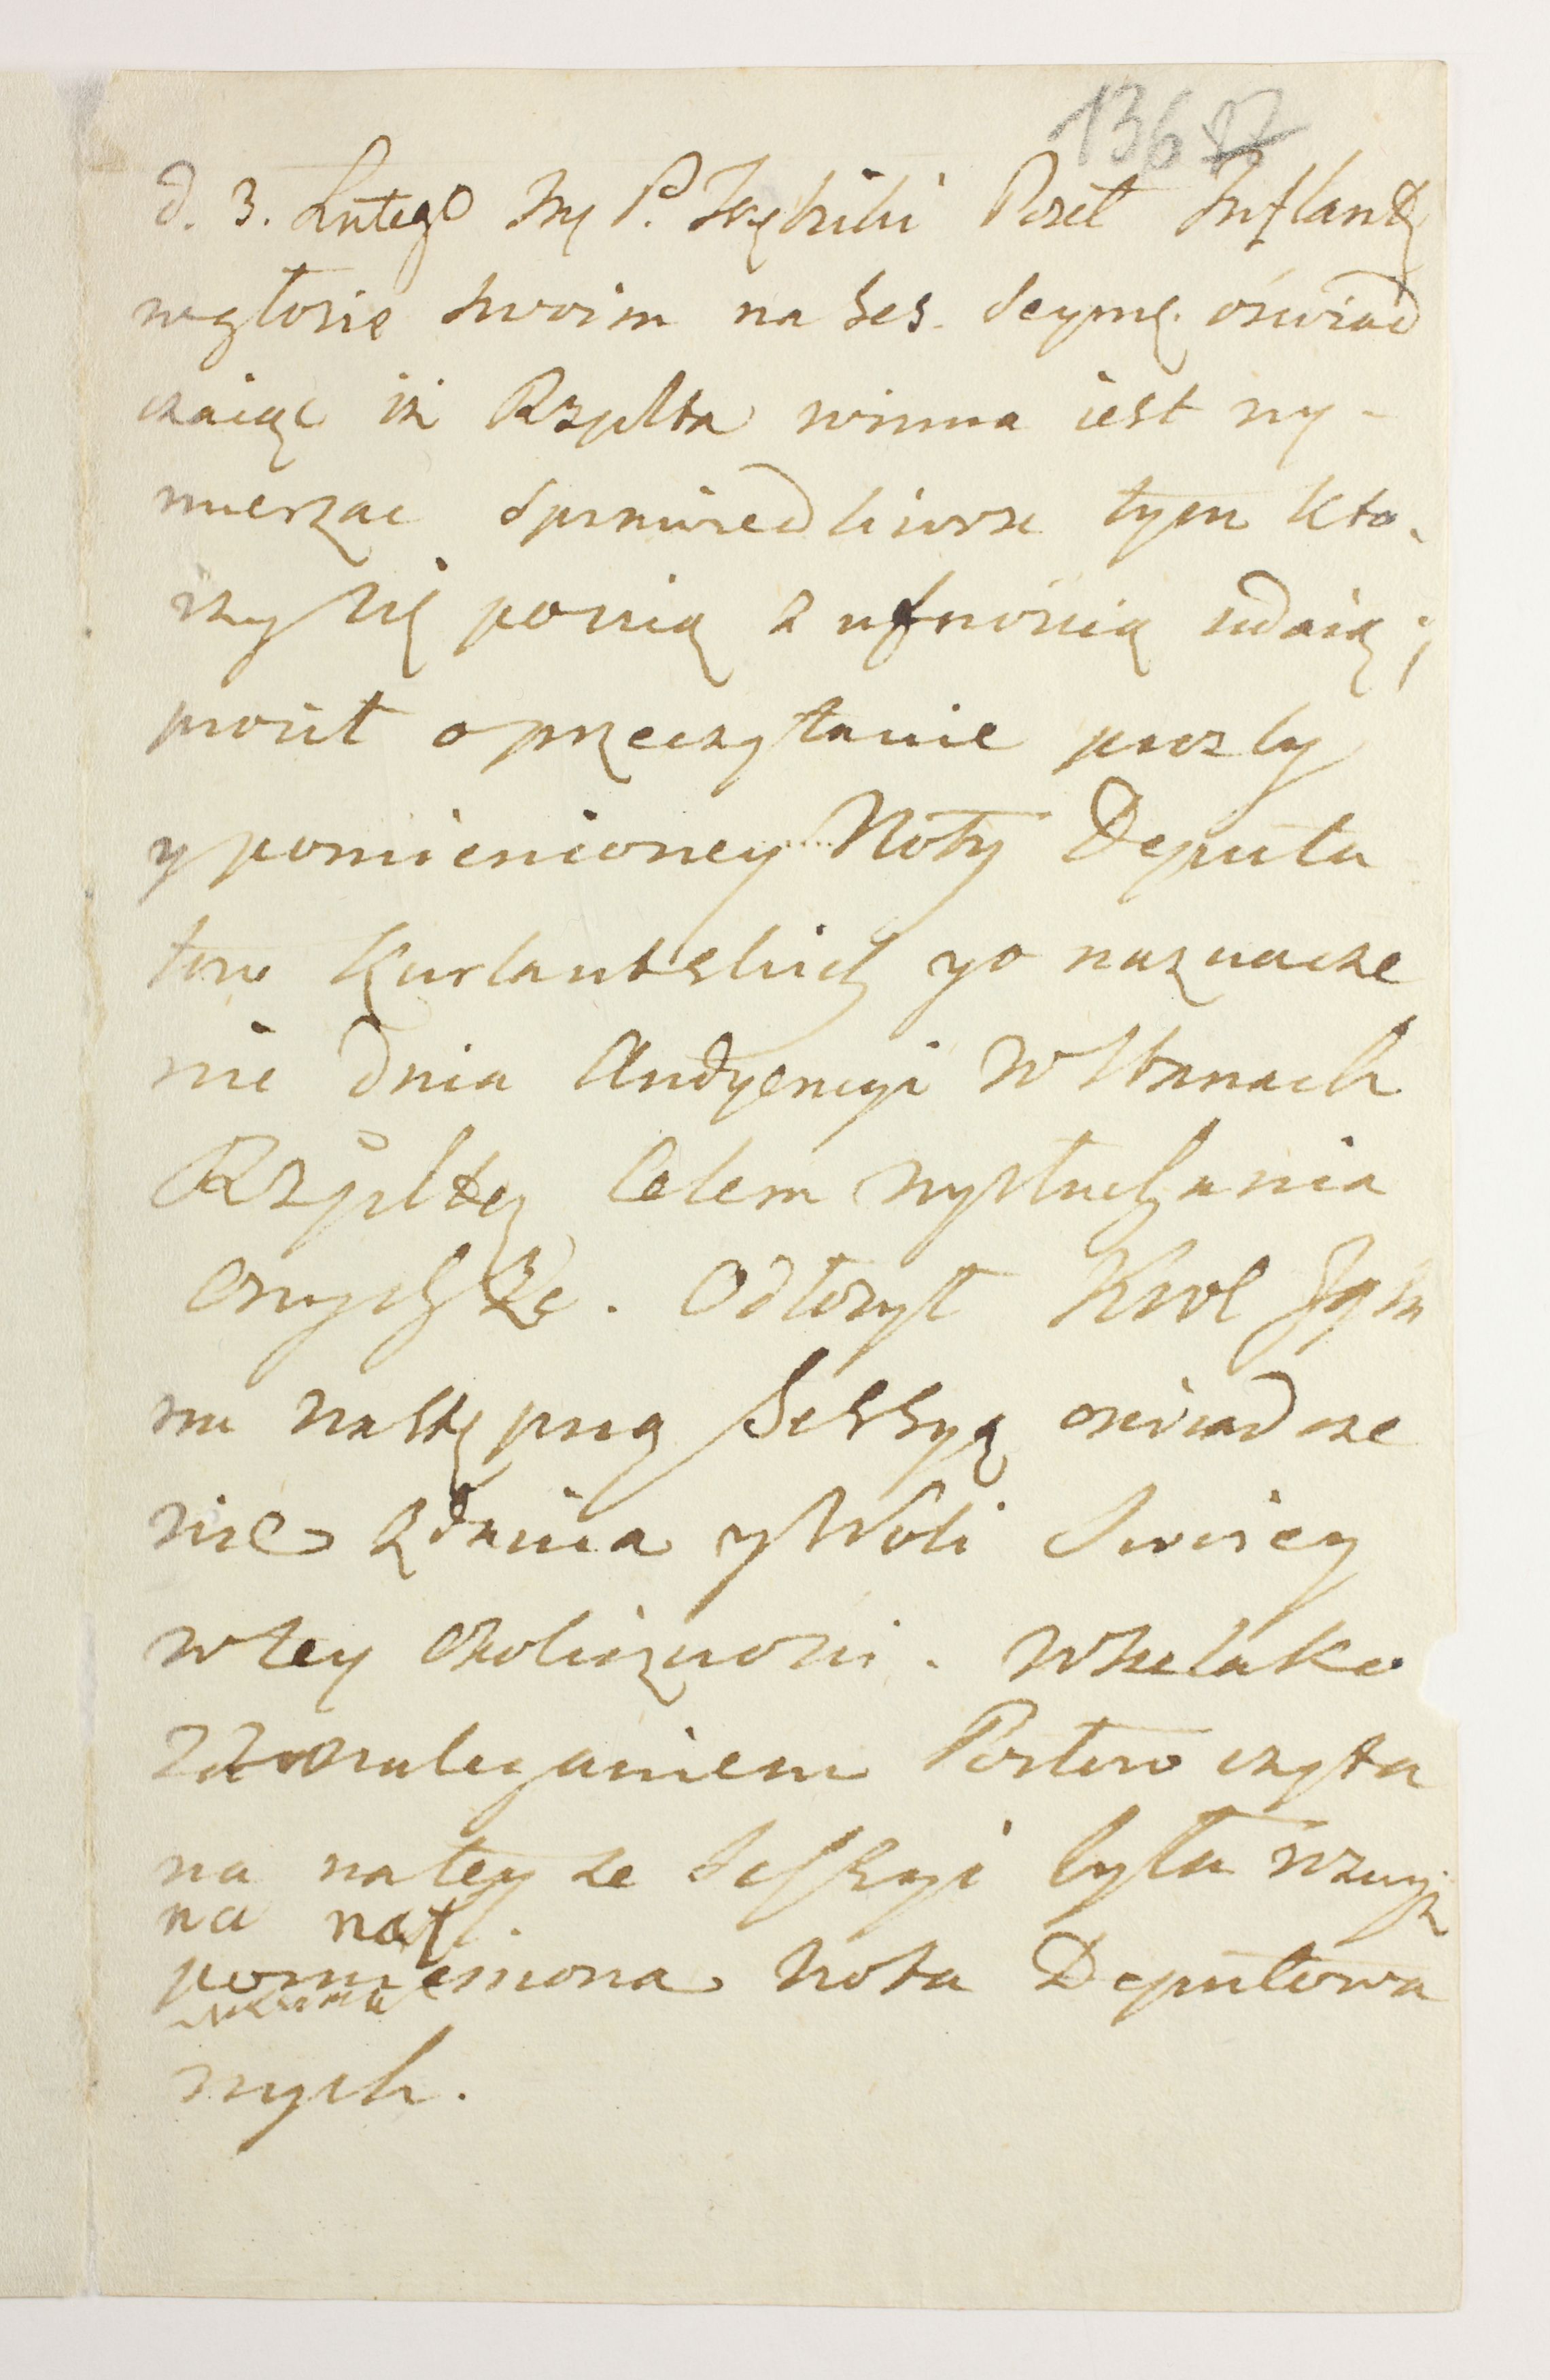 136 87
d. 3. Lutego Jm P. Trębicki Poseł Inflantς
w głosie swoim na Ses. Seymę. oświad
czaiąc iż Rzplta winna iest wy-
mierzac sprawiedliwosc tym kto-
rzy się po nią z ufnością udaią;
prosił o przeczytanie prozby
y pomienioney Noty Deputa
tow Kurlantskich y o naznacze
nie dnia Audyencyi w Stanach
Rzplttey Celem wysłuchania
onych &c. Odłozył Krol Jgm
na następną Sessyą oswiadcze
nie zdania y Woli Swoiey
w tey okolicznosci. Wszelako
za naleganiem Posłow czyta
na na teyze Sessyi była wzwyż
na nas.
pomieniona Nota Deputowa
nych.